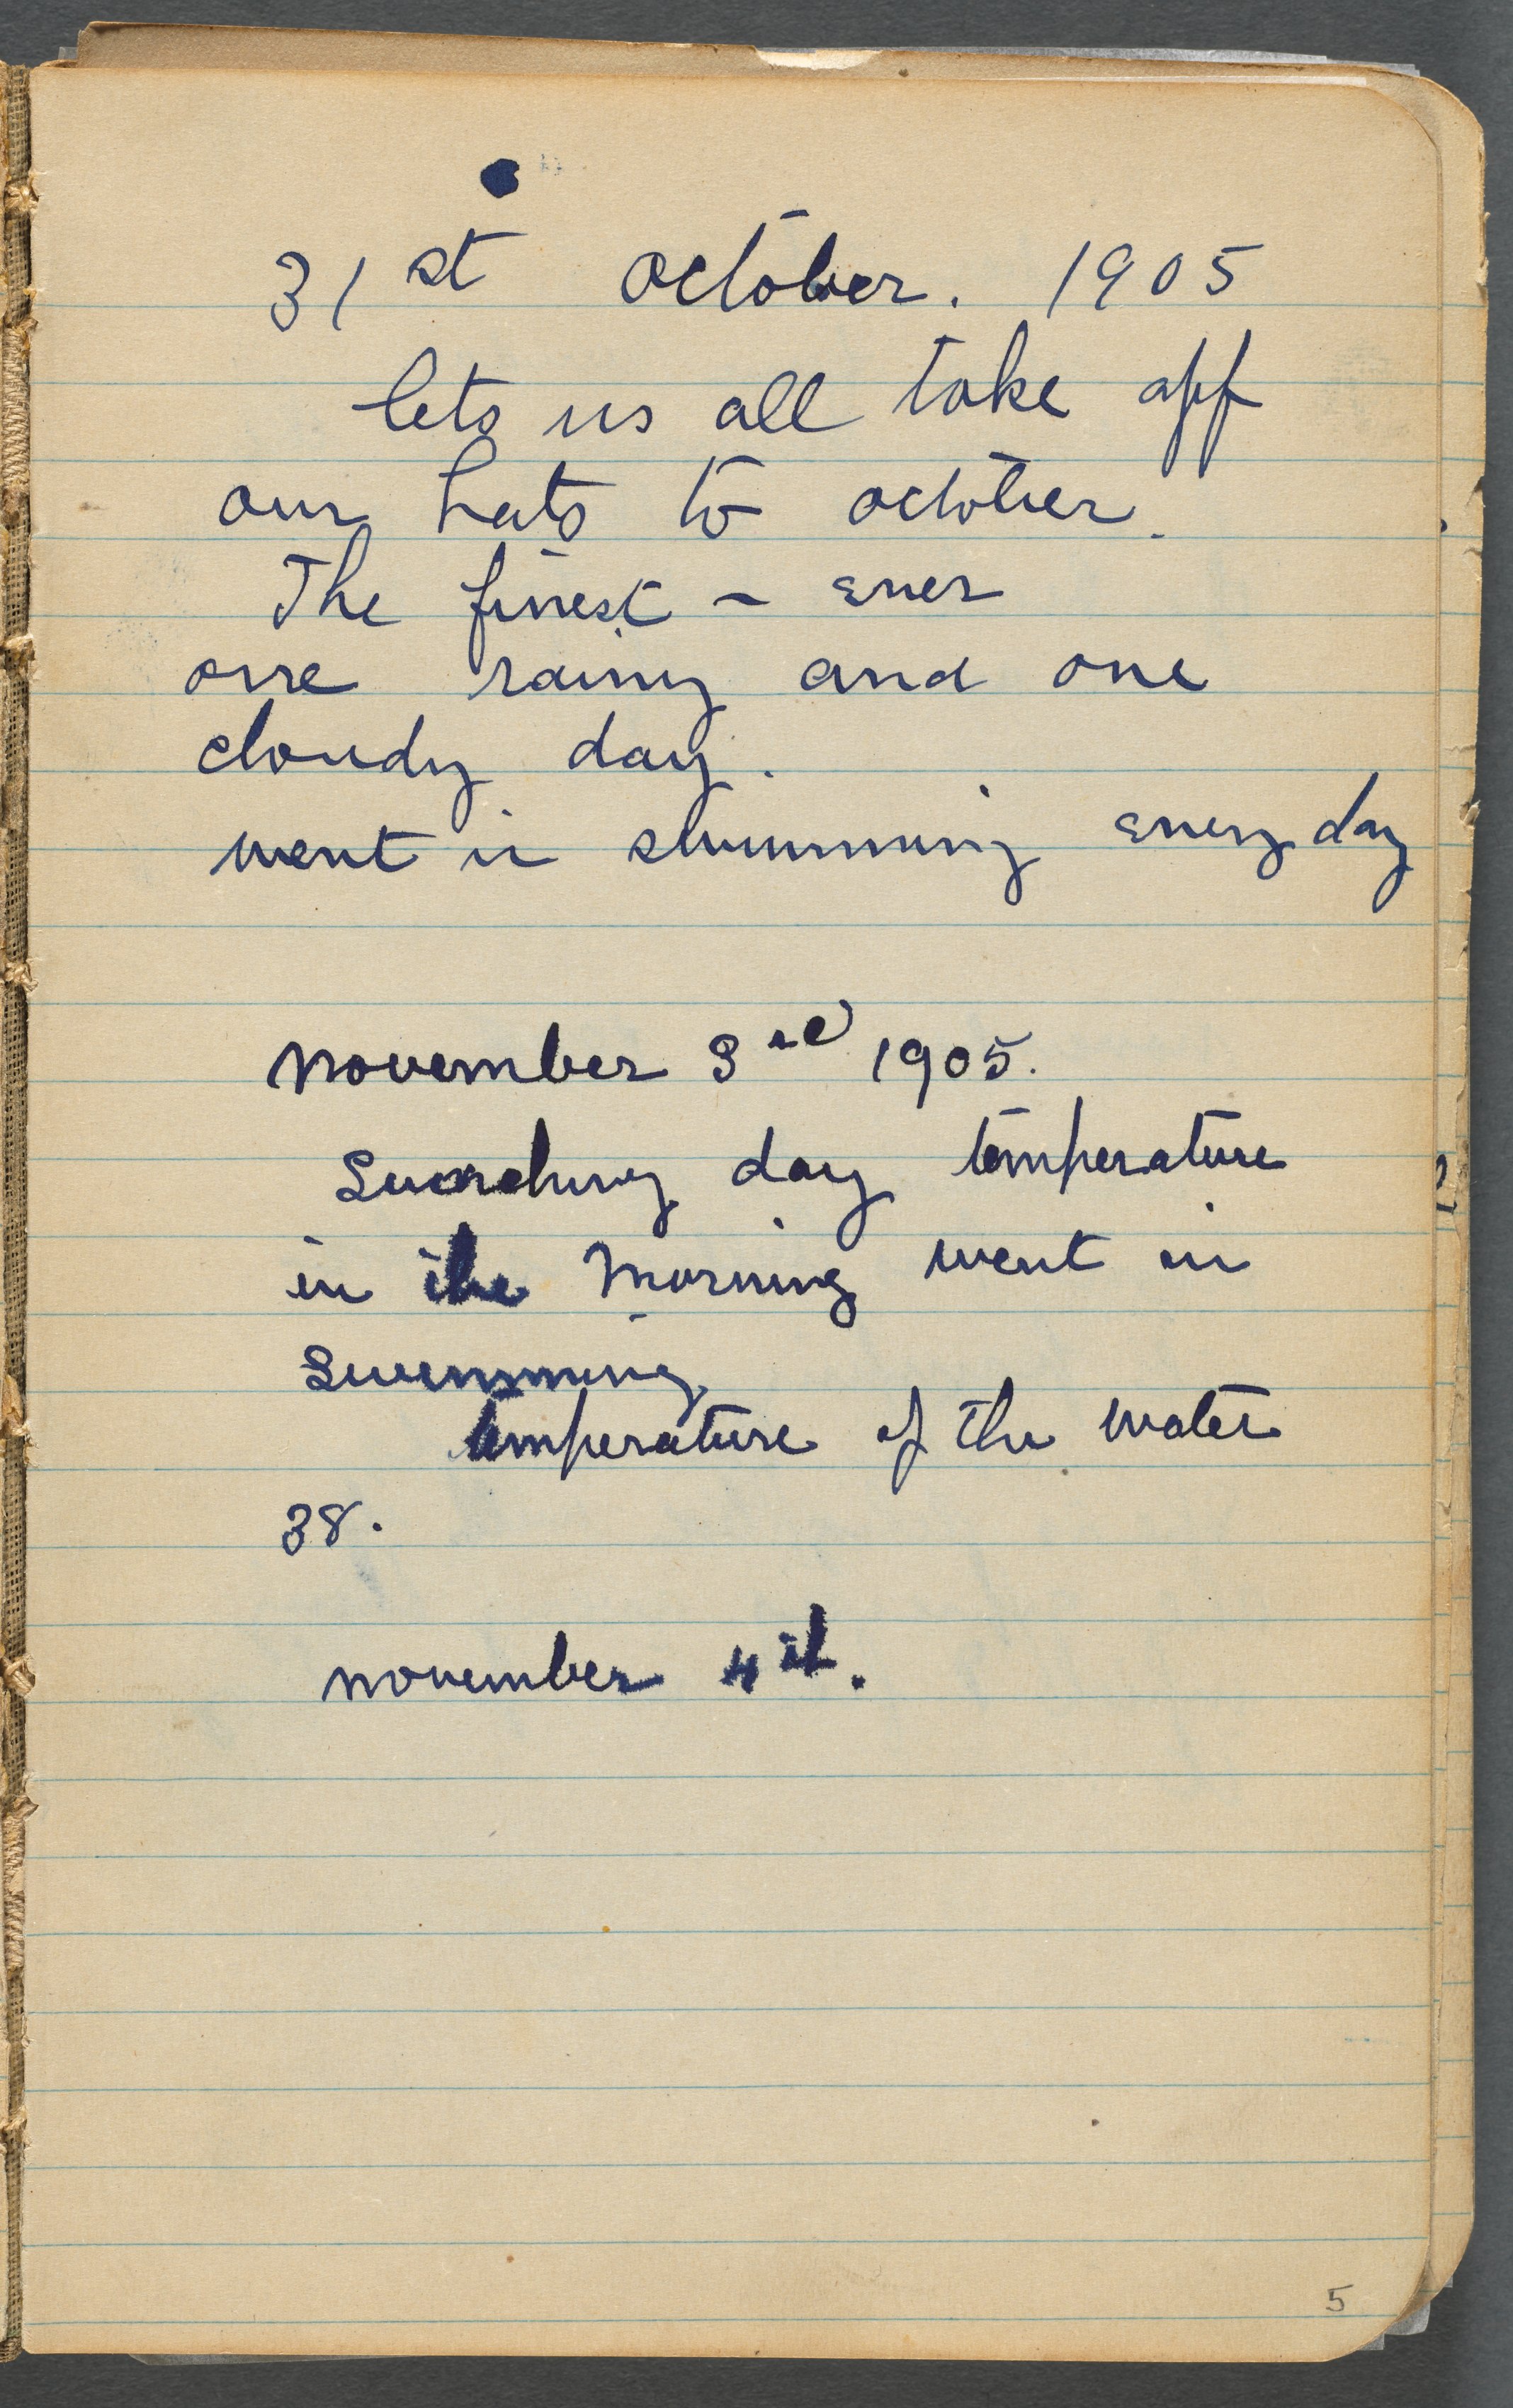 31st October. 1905
lets us all take off
our hats to october.
The finest – ever
one rainy and one
cloudy day.
went in swimming every day
November 3rd 1905.
day temperature
in the morning went in
Swimming
temperature of the water
38.
november 4th.
5